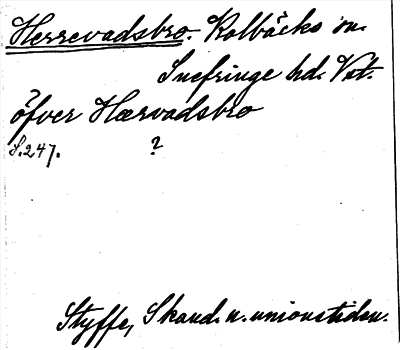 Herrevadsbro. Kolbäcks sn.
Snefringe hd. Vst.
öfver Hærvadsbro
S. 247. ?
Styffe, Skand. u. unionstiden.